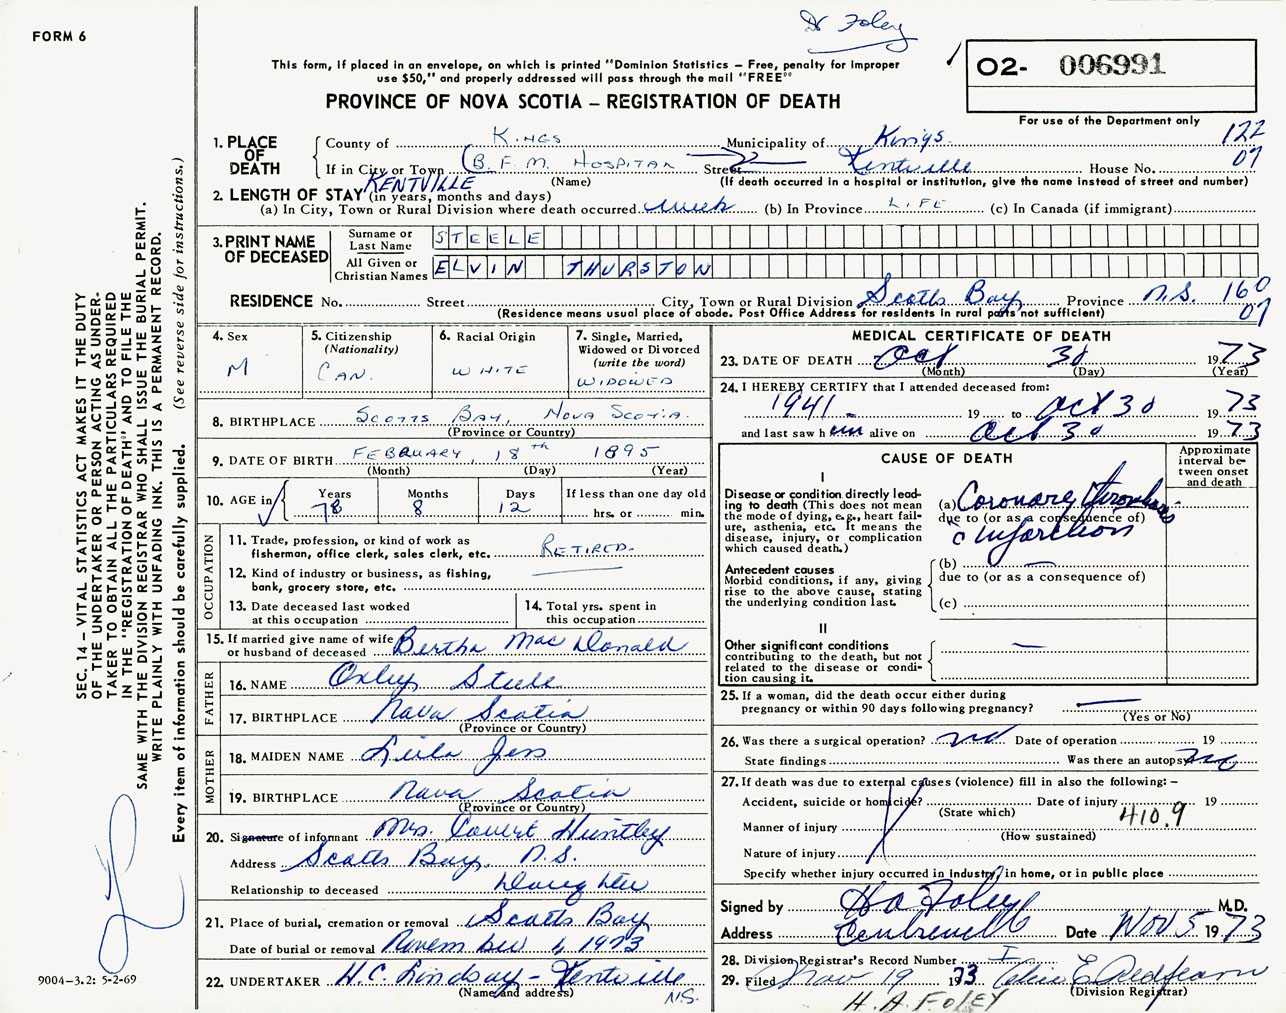 Dr Foley
FORM 6
This form, if placed in an envelope, on which is printed "Dominion Statistics – Free, penalty for improper
use $50," and properly addressed will pass through the mail "FREE"
PROVINCE OF NOVA SCOTIA – REGISTRATION OF DEATH
02- 006991
For use of the Department only
122
07
1. PLACE OF DEATH
County of KINGS Municipality of Kings
If in City or Town (B.F.M. HOSPITAL Street Kentville House No.
KENTVILLE (Name) (If death occurred in a hospital or institution, give the name instead of street and number)
2. LENGTH OF STAY (in years, months and days)
(a) In City, Town or Rural Division where death occurred week (b) In Province LIFE (c) In Canada (if immigrant)
3. PRINT NAME OF DECEASED
Surname or Last Name STEELE
All Given or Christian Names ELVIN THURSTON
RESIDENCE No. Street City, Town or Rural Division Scotts Bay Province N.S. 160
07
(Residence means usual place of abode. Post Office Address for residents in rural parts not sufficient)
4. Sex
M
5. Citizenship
(Nationality)
CAN.
6. Racial Origin
WHITE
7. Single, Married,
Widowed or Divorced
(write the word)
WIDOWED
8. BIRTHPLACE SCOTTS BAY, NOVA SCOTIA.
(Province or Country)
9. DATE OF BIRTH FEBRUARY, 18th 1895
(Month) (Day) (Year)
10. AGE in Years Months Days If less than one day old
78 8 12 hrs. or min.
OCCUPATION
11. Trade, profession, or kind of work as
fisherman, office clerk, sales clerk, etc. RETIRED.
12. Kind of industry or business, as fishing,
bank, grocery store, etc.
13. Date deceased last worked
at this occupation
14. Total yrs. spent in
this occupation
15. If married give name of wife
or husband of deceased Bertha MacDonald
FATHER
16. NAME Oxley Steele
17. BIRTHPLACE Nova Scotia
(Province or Country)
MOTHER
18. MAIDEN NAME Leila Jess
19. BIRTHPLACE Nova Scotia
(Province or Country)
20. Signature of informant Mrs. Covert Huntley
Address Scotts Bay, N.S.
Relationship to deceased Daughter
21. Place of burial, cremation or removal Scotts Bay
Date of burial or removal November 1, 1973
22. UNDERTAKER H.C. Lindsay - Kentville
(Name and address) N.S.
MEDICAL CERTIFICATE OF DEATH
23. DATE OF DEATH Oct 30 1973
(Month) (Day) (Year)
24. I HEREBY CERTIFY that I attended deceased from:
1941 - 19 to Oct 30 1973
and last saw him alive on Oct 30 1973
CAUSE OF DEATH
Approximate
interval be-
tween onset
and death
I
Disease or condition directly lead-
ing to death (This does not mean
the mode of dying, e.g., heart fail-
ure, asthenia, etc. It means the
disease, injury, or complication
which caused death.)
(a) Coronary thrombosis
due to (or as a consequence of)
c infarction
Antecedent causes
Morbid conditions, if any, giving
rise to the above cause, stating
the underlying condition last.
(b) —
due to (or as a consequence of)
(c)
II
Other significant conditions
contributing to the death, but not
related to the disease or condi-
tion causing it.
—
25. If a woman, did the death occur either during
pregnancy or within 90 days following pregnancy? —
(Yes or No)
26. Was there a surgical operation? no Date of operation 19
State findings Was there an autopsy no
27. If death was due to external causes (violence) fill in also the following:–
Accident, suicide or homicide? Date of injury 19
(State which) 410.9
Manner of injury
(How sustained)
Nature of injury
Specify whether injury occurred in industry, in home, or in public place
Signed by H A Foley M.D.
Address Date Nov 5 1973
28. Division Registrar's Record Number I
29. Filed Nov 19 1973
(Division Registrar)
H.A. FOLEY
SEC. 14 – VITAL STATISTICS ACT MAKES IT THE DUTY
OF THE UNDERTAKER OR PERSON ACTING AS UNDER-
TAKER TO OBTAIN ALL THE PARTICULARS REQUIRED
IN THE "REGISTRATION OF DEATH" AND TO FILE THE
SAME WITH THE DIVISION REGISTRAR WHO SHALL ISSUE THE BURIAL PERMIT.
WRITE PLAINLY WITH UNFADING INK. THIS IS A PERMANENT RECORD.
Every item of information should be carefully supplied. (See reverse side for instructions.)
9004-3.2: 5-2-69